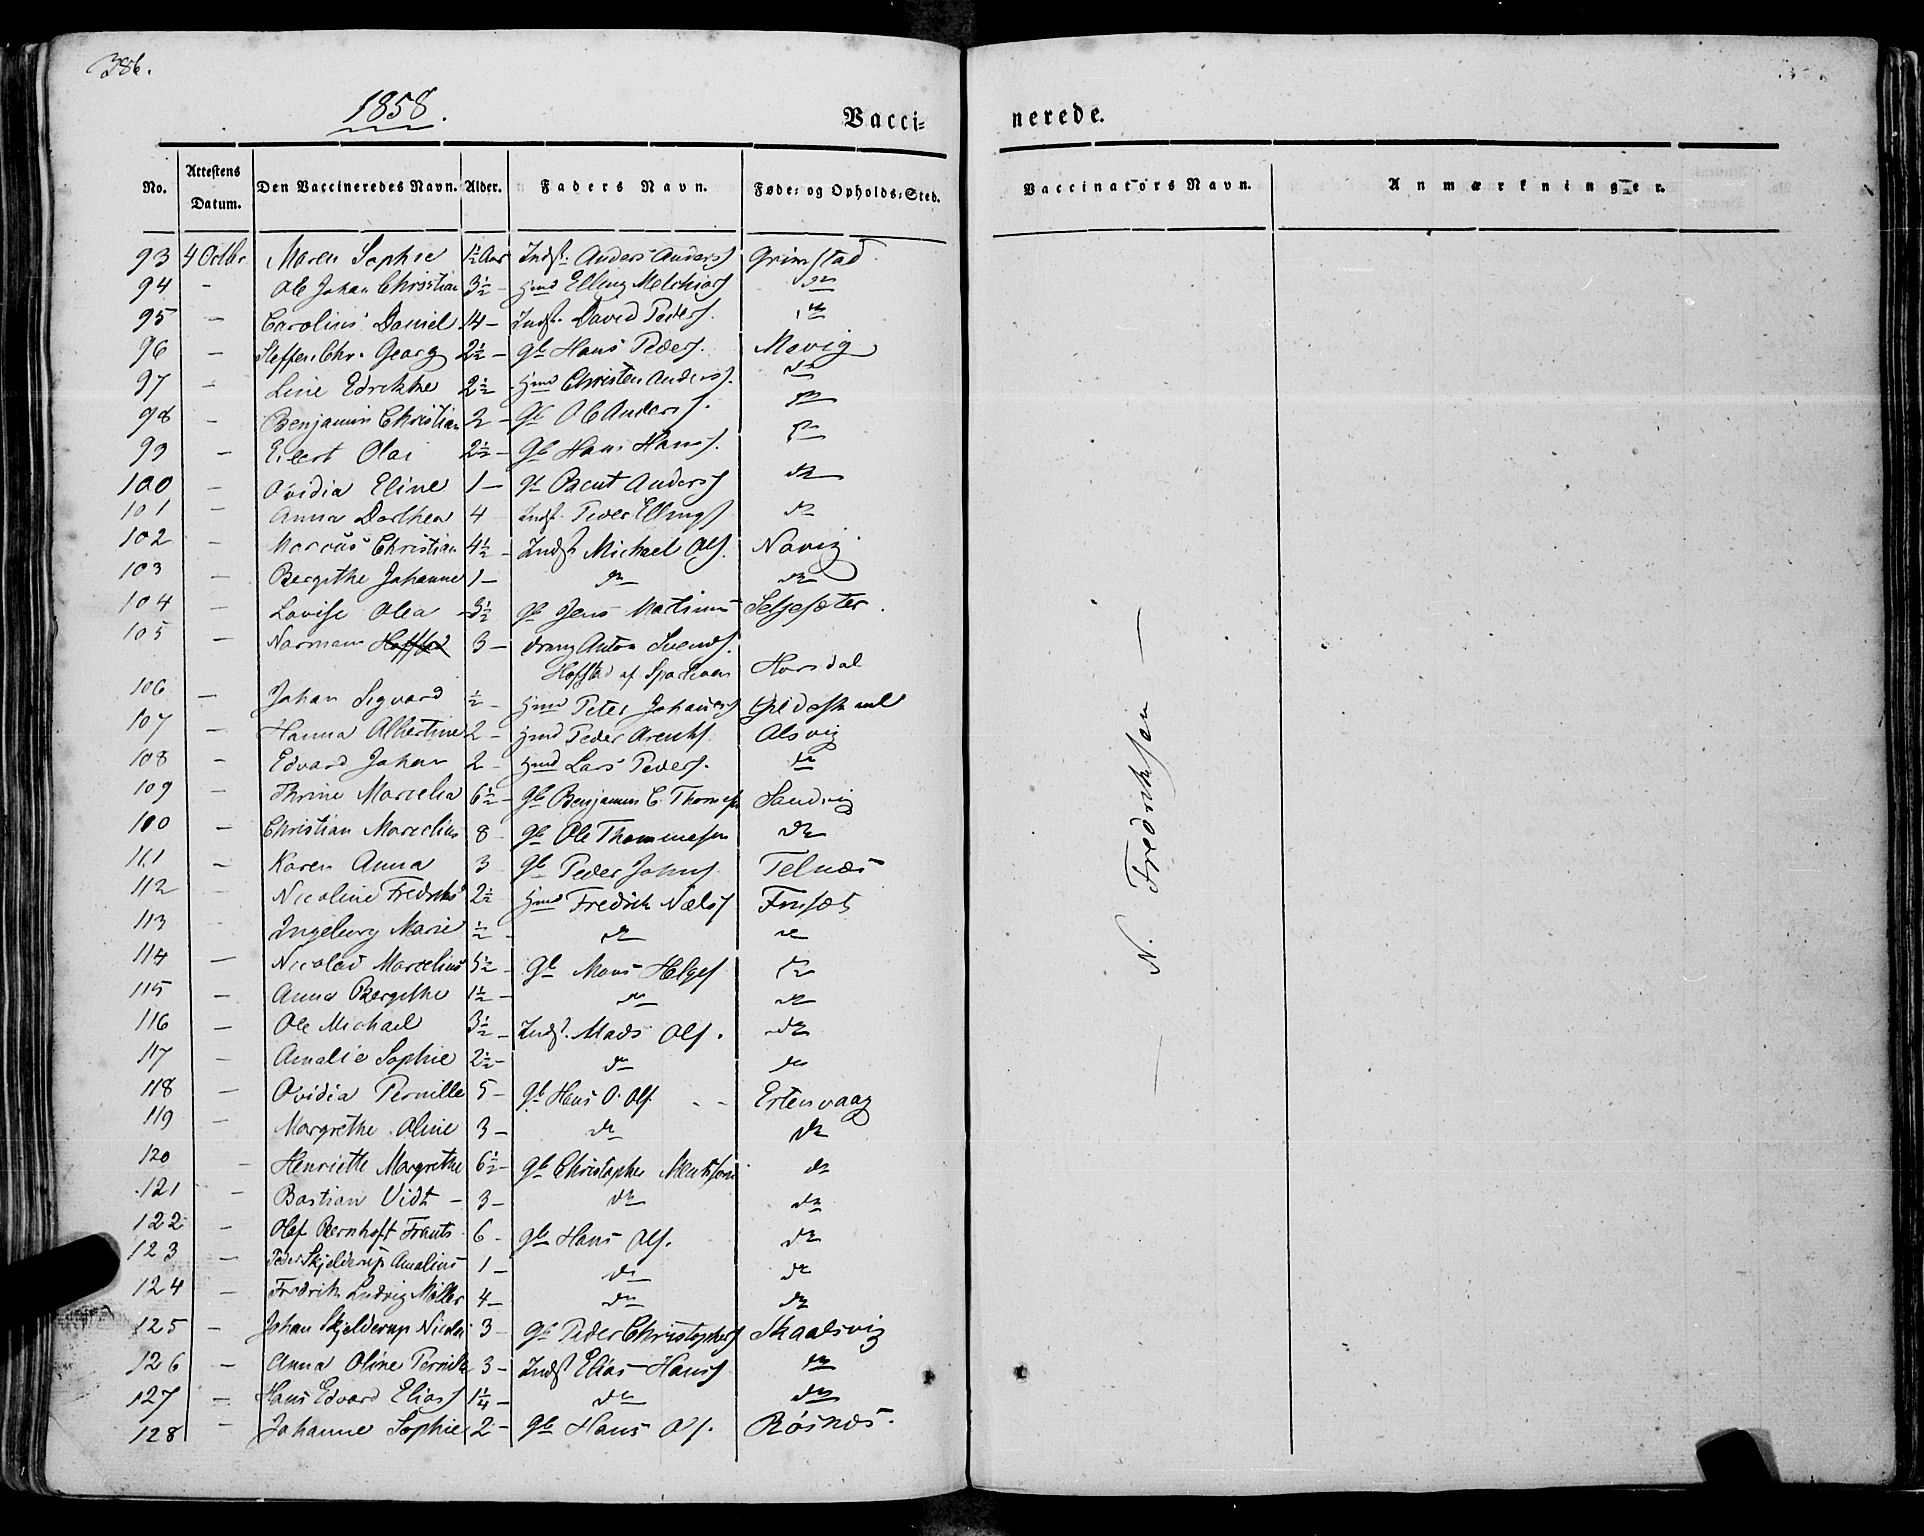 386.
1858.
Vacci-
nerede.
No. Attestens Datum. Den Vaccineredes Navn. Alder. Faders Navn. Føde- og Opholds-Sted.
Vaccinatørs Navn. Anmærkninger.
93 4 Octbr Maren Sophie 1½ Aar Indst. Anders Anders Grimstad
94 - Ole Johan Christian 3½ - Hmd Elling Melchiors do
95 - Carolius Daniel 14 - Indst. David Peders. do
96 - Steffen Chr. Georg 2½ - gb Hans Peders. Mevig
97 - Line Edrikke 2½ - Hmd Christen Anders. do
98 - Benjamin Christian 2 - gb Ole Anders. do
99 - Eilert Olai 2½ - gb Hans Hans. do
100 - Ovidia Eline 1 - gb Bent Anders do
101 - Anna Dorthea 4 Indst. Peder Ellings do
102 - Marcus Christian 4½ - Indst Michael Ols. Novig
103 - Bergithe Johanne 1 - do do
104 - Lovise Olea 3½ gb Jens Martinus Seljesæter.
105 - Normann 3 - dreng Anton Svends.
Hoffstad af Horsdal
106 - Johan Sigvard ½ - Hmd Peter Johans Gildeskaal
107 - Hanna Albertine 2 - Hmd Peder Arents. Alsvig
108 - Edvard Johan 2 - Hmd Lars Peders. do
109 - Thrine Marcelia 6½ - gb Benjamin C. Thomes Sandvig
110 - Christian Marcelius 8 - gb Ole Thommesen do
111 - Karen Anna 3 gb Peder Johns Telnæs
112 - Nicoline Fredrikke 2½ Hmd Fredrik Nils
113 - Ingeburg Marie ½ - do do
114 - Nicolai Marcelius 5½ - gb Mons Helges do
115 - Anna Bergithe 1½ - do do
116 - Ole Michael 3½ - Indst. Mads Ols. do
117 - Amalie Sophie 2½ - do do
118 - Ovidia Pernille 5 - gb Hans O. Ols. - - Ertenvaag
119 - Margrethe Oline 3 - do do
120 - Henriette Margrethe 6½ - gb Christopher do
121 - Bastian Vidt - 3 - do do
122 - Olaf Bernhoft Frants 6 - gb Hans Ols. do
123 - Peder Skjelderup Amalius 1 - do do
124 - Fredrik Ludvig Møller 4 - do do
125 - Johan Skjelderup Nicolai 3 - gb Peder Christophers Skaalsvig
126 - Anna Oline Pernille 3 - Indst Elias Hans do
127 - Hans Edvard Elias 1¼ - do do
128 - Johanne Sophie 2 - gb Hans Ols. Røsnæs.
— N. Fredriksen —